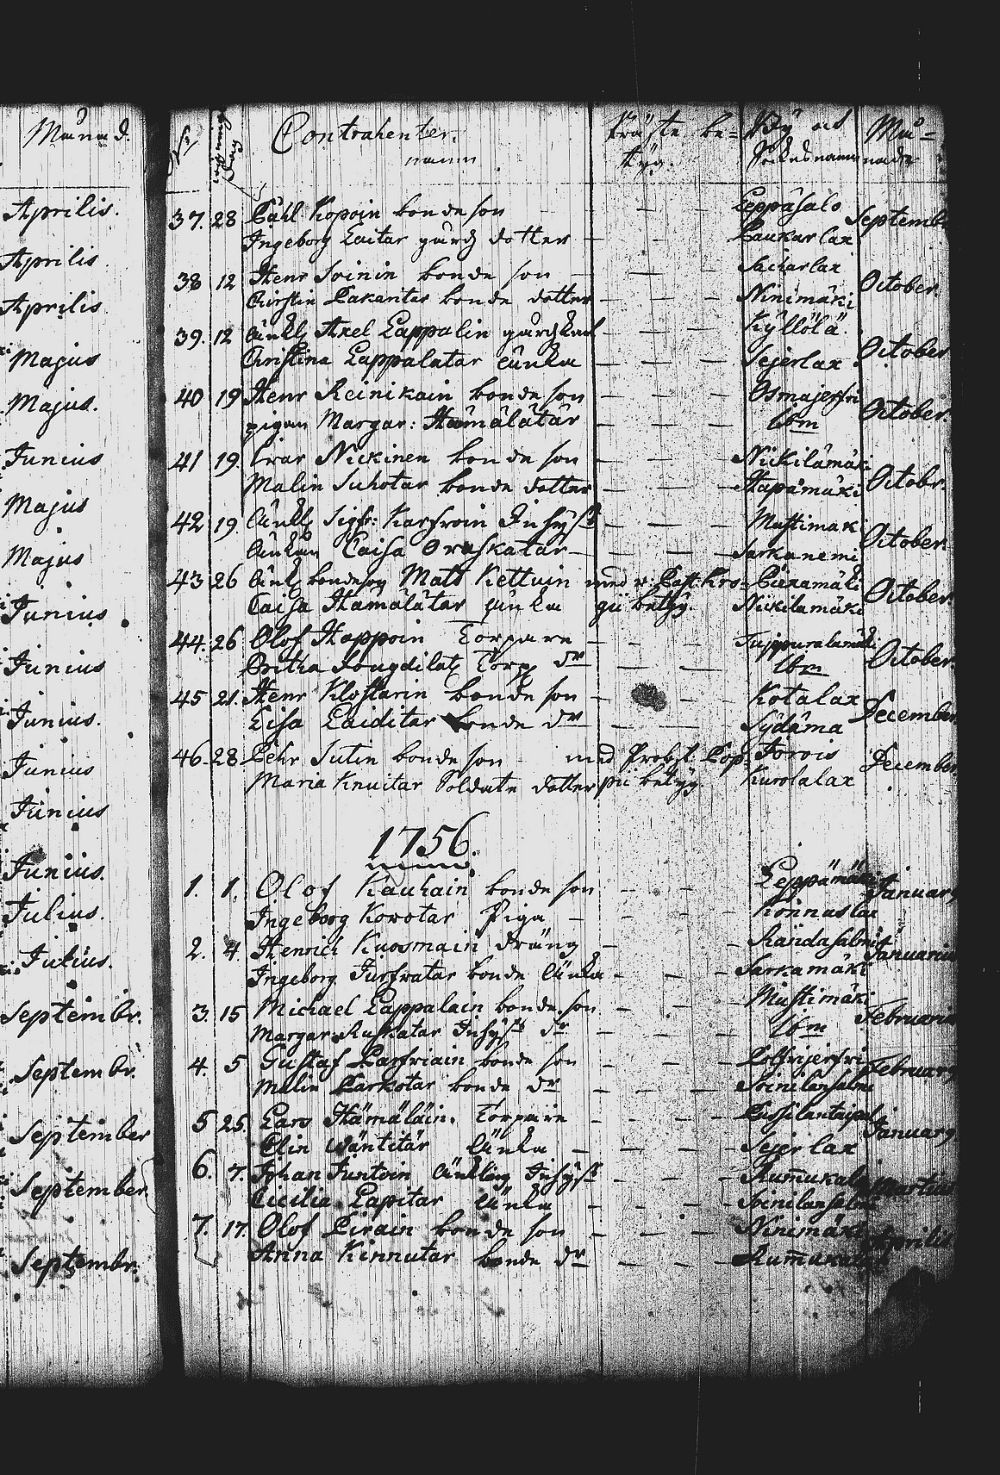 Månad.
Aprilis.
Aprilis
Aprilis
Majus
Majus.
Junius
Majus
Majus
Junius
Junius
Junius.
Junius
Junius
Junius.
Julius.
Julius.
Septembr.
Septembr.
September
September
Septembr.
No Contrahenter. Präste be= By och Må=
namn tyg. Sockns namn nade
37. 28 Påhl Kopoin bonde son — — — Leppäsalo Septemb
Ingeborg Laitar gårds dotter — — — Paukarlax
38 12 Henr Soinin bonde son — — — Sacharlax October.
Kirstin Pakaritar bonde dotter — — — Ninimäki
39. 12 Änkl Axel Lappalin — — — Kyllölä. October
Christina Lappalatar änka — — — Sejerlax
40 19 Henr Reinikain bonde son — — — Osmajerfvi October
pigan Margar: Hämälätär — — — Ibm
41 19. Ivar Nickinen bonde son — — — Nickilämäki Octobr.
Malin Suhotar bonde dotter — — — Hapamäki
42 19. Änkl Sigfr: Karfvoin Inhyst — — — Mustimäki October
Änkan Caisa Oraskatar — — — Sarkanemi
43 26 Änkl bondeson Matts Kettuin med v: Past: Kro- October
Caisa Hämälätar änka gii betyg. Nickilamäki
44. 26 Olof Happoin Torpare — — — October
Britha Torp dr — — — Ibm
45 21. Henr Klostarin bonde son — — — Kotalax December
Lisa Laiditar bonde dr — — — Sydäma
46. 28. Pehr Sutin bonde son med Probst Pop- Jorois December
Maria Knuitar Soldate dotter pii betyg. Kurolalax
1756.
1. 1. Olof Kauhain bonde son — — — Leppämäki Januar
Ingeborg Korotar Piga — — — Könnuslax
2. 4. Henrich Kuosmain dräng — — — Randasalmi Januarius
Ingeborg Turfvatar bonde änka — — — Sarkamäki
3. 15 Michael Lappalain bonde son — — — Mustimäki Februari
Margar Ruskatar Inhyst dr — — — Ibm
4. 5 Gustaf Parfviain bonde son — — — Februar
Malin Parkotar bonde dr — — — Soinilansalmi
5 25. Lars Hämäläin. Torpare — — — Januar
Elin Wäntitär änka — — — Sejerlax
6. 7. Johan Juntoin änkling Inhyst — — — Rummukala Martius
Cicilia Lapitar änka — — — Soinilansalmi
7. 17. Olof Pirain bonde son — — — Ninimäki Aprilis
Anna Kinnutar bonde dr — — — Rummukala